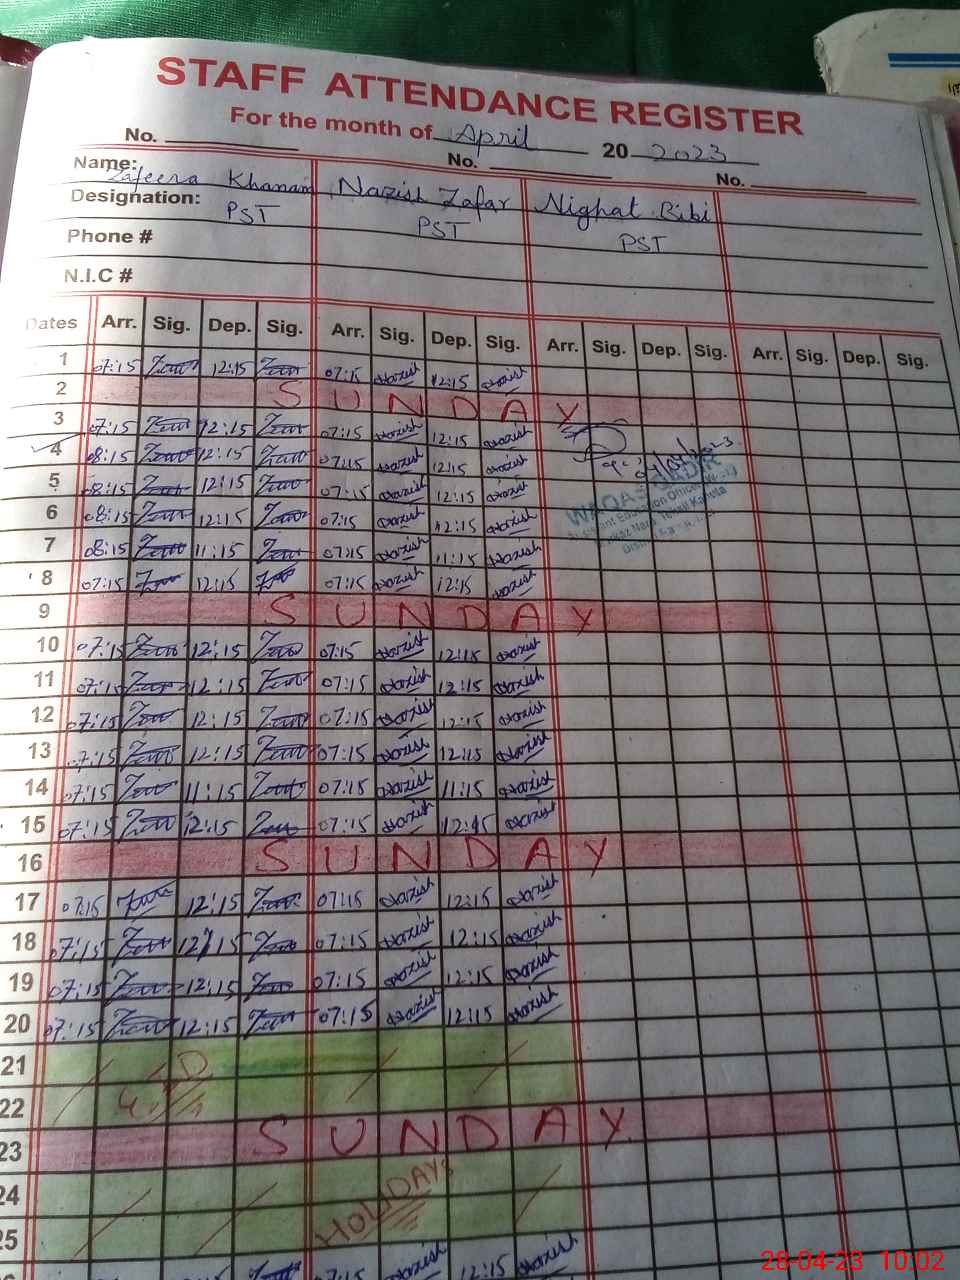 STAFF ATTENDANCE REGISTER
For the month of April 20 2023
No. No. No.
Name: Zafeera Khanam Nazish Zafar Nighat Bibi
Designation: PST PST PST
Phone #
N.I.C #
Dates Arr. Sig. Dep. Sig. Arr. Sig. Dep. Sig. Arr. Sig. Dep. Sig. Arr. Sig. Dep. Sig.
1 07:15 12:15 07:15 Nazish 12:15 Nazish
2 SUNDAY
3 07:15 12:15 07:15 Nazish 12:15 Nazish
4 08:15 12:15 07:15 Nazish 12:15 Nazish
5 08:15 12:15 07:15 Nazish 12:15 Nazish
WAQAS QADIR
6 08:15 12:15 07:15 Nazish 12:15 Nazish
7 08:15 11:15 07:15 Nazish 11:15 Nazish
8 07:15 12:15 07:15 Nazish 12:15 Nazish
9 SUNDAY
10 07:15 12:15 07:15 Nazish 12:15 Nazish
11 07:15 12:15 07:15 Nazish 12:15 Nazish
12 07:15 12:15 07:15 Nazish 12:15 Nazish
13 07:15 12:15 07:15 Nazish 12:15 Nazish
14 07:15 11:15 07:15 Nazish 11:15 Nazish
15 07:15 12:15 07:15 Nazish Nazish
16 SUNDAY
17 07:15 12:15 07:15 Nazish 12:15 Nazish
18 07:15 12:15 07:15 Nazish 12:15 Nazish
19 07:15 12:15 07:15 Nazish 12:15 Nazish
20 07:15 12:15 07:15 Nazish 12:15 Nazish
21
22
23 SUNDAY
24 HOLIDAYS
25
07:15 Nazish 12:15 Nazish
28-04-23 10:02